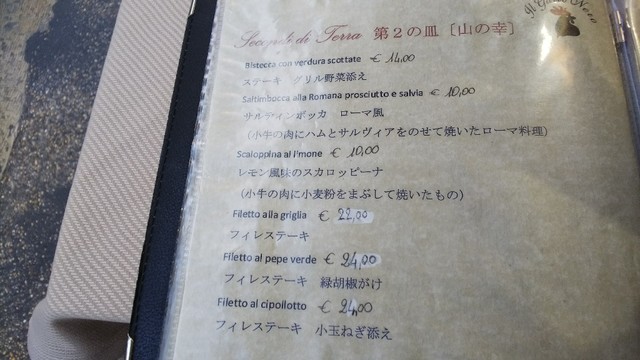 Secondi di Terra 第2の皿［山の幸］
Il Gatto Nero
Bistecca con verdura scottate € 14,00
ステーキ グリル野菜添え
Saltimbocca alla Romana prosciutto e salvia € 10,00
サルティンボッカ ローマ風
（小牛の肉にハムとサルヴィアをのせて焼いたローマ料理）
Scaloppina al limone € 10,00
レモン風味のスカロッピーナ
（小牛の肉に小麦粉をまぶして焼いたもの）
Filetto alla griglia € 22,00
フィレステーキ
Filetto al pepe verde € 24,00
フィレステーキ 緑胡椒がけ
Filetto al cipollotto € 24,00
フィレステーキ 小玉ねぎ添え